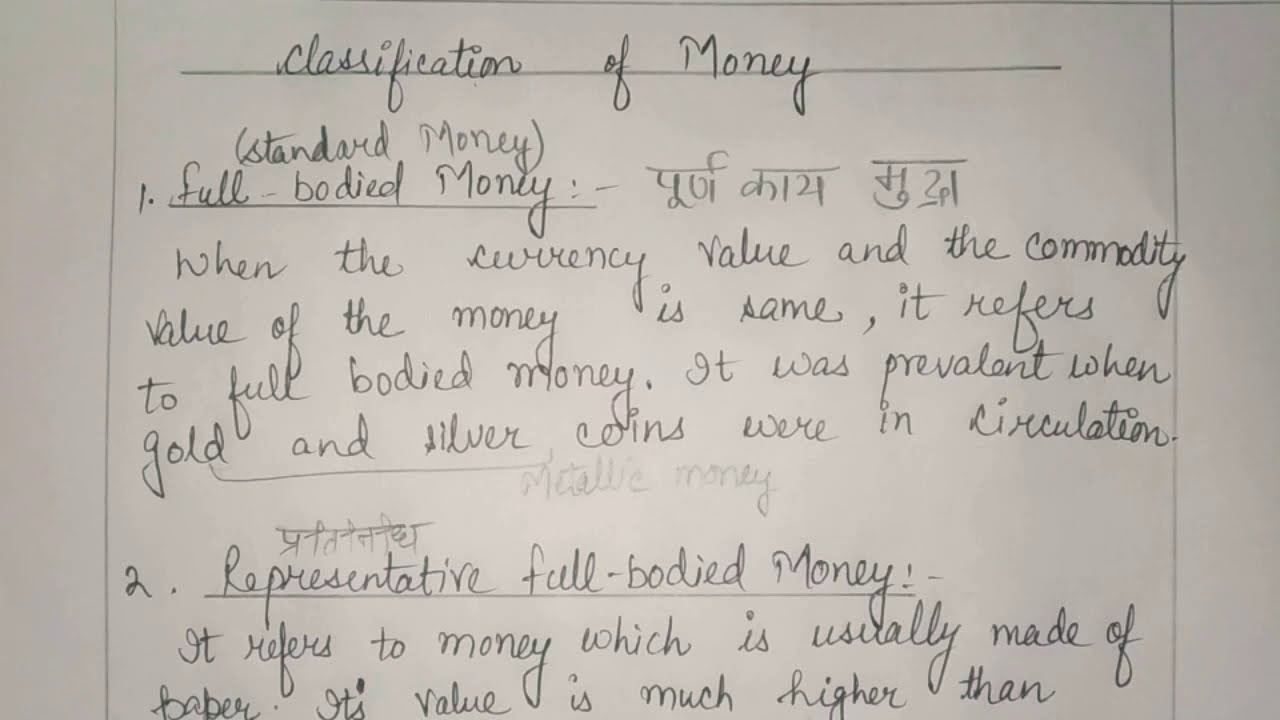 Classification of Money
(standard Money)
1. full-bodied Money:- पूर्ण काय मुद्रा
When the currency value and the commodity
value of the money is same, it refers
to full bodied money. It was prevalent when
gold and silver coins were in circulation.
Metallic money
प्रतिनिधि
2. Representative full-bodied Money:-
It refers to money which is usually made of
paper. It's value is much higher than